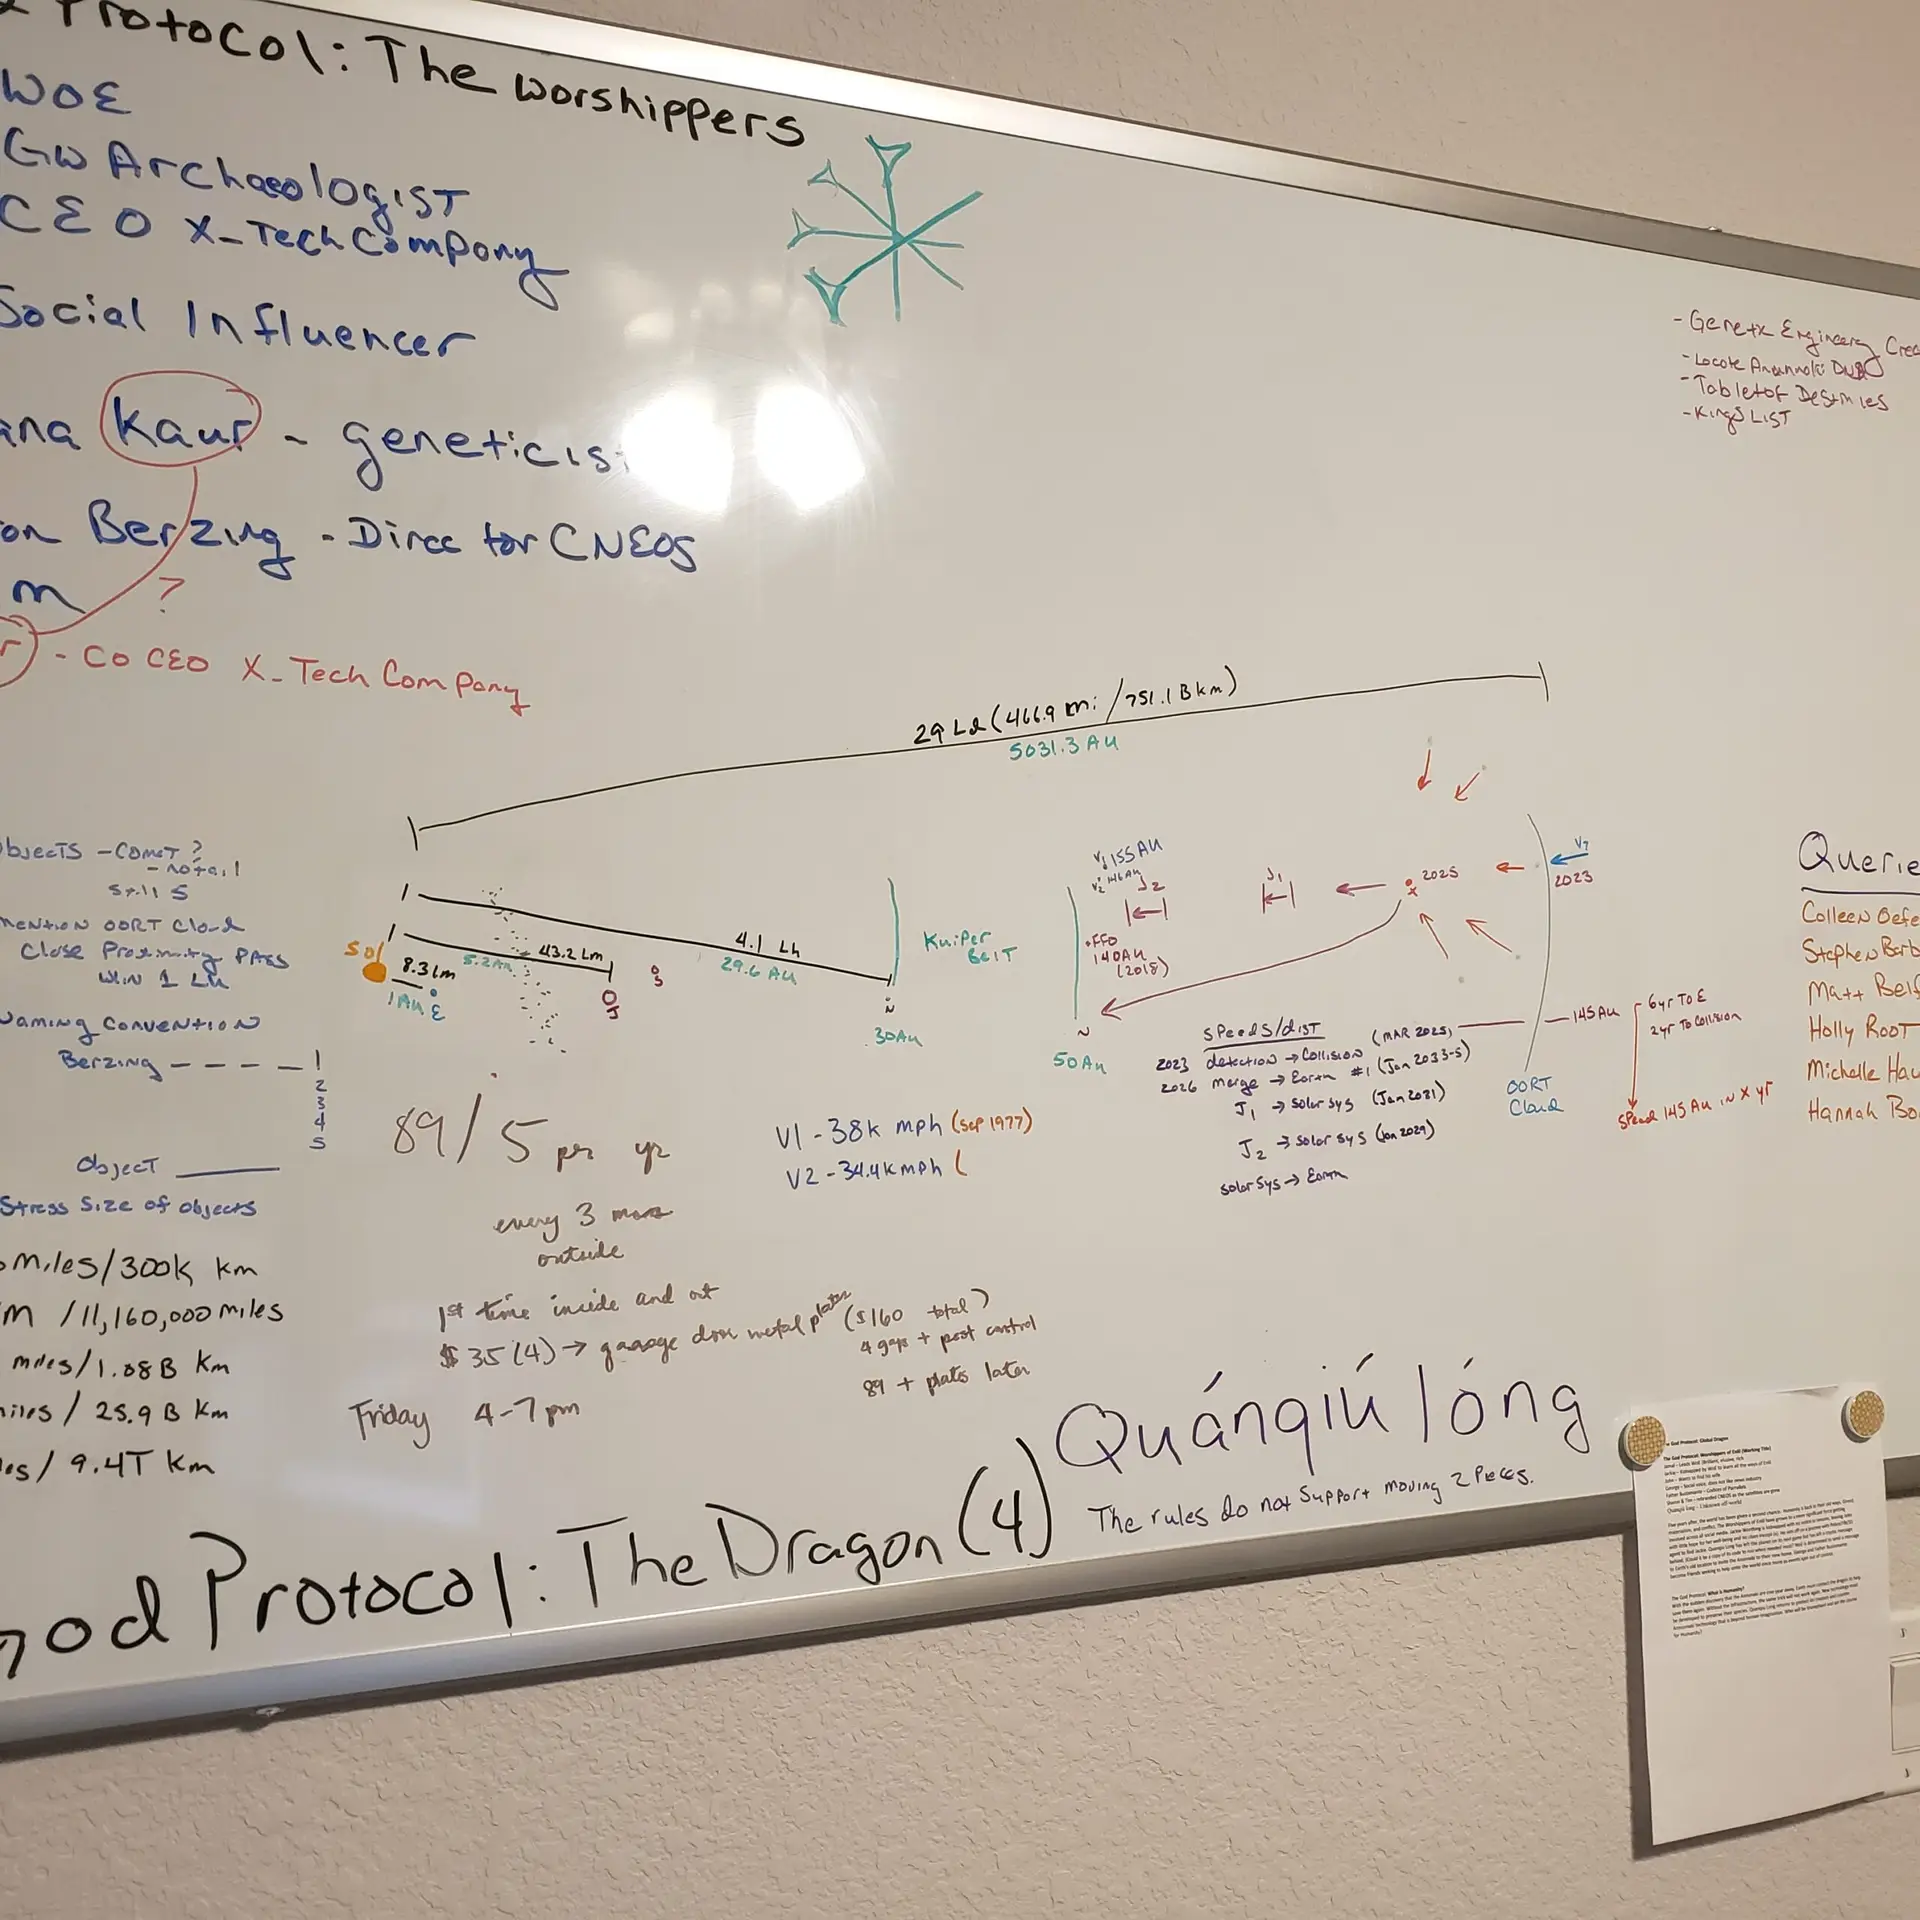 Protocol: The Worshippers
WOE
GW Archaeologist
CEO X-Tech Company
Social Influencer
ana Kaur - geneticis
on Berzing - Director CNEOS
m
?
r - Co CEO X-Tech Company
- Locate Anunnaki DNA
- Tablet of Destinies
- Kings List
29 Ld (466.9 mi / 751.1 B km)
5031.3 AU
Objects - Comet?
- no tail
still 5
mention OORT Cloud
Close Proximity PASS
w/in 1 LM
Naming Convention
Berzing - - - - 1
2
3
4
5
Object ______
Stress Size of objects
miles/300k km
m / 11,160,000 miles
miles/1.08B km
miles / 25.9 B km
es / 9.4T km
Sol
8.3 lm
1 AU
E
5.2 AU
43.2 Lm
J
S
4.1 Lh
29.6 AU
N
30 AU
Kuiper
Belt
N
50 AU
V1 155 AU
V2 146 AU
J2
FFO
140 AU
(2018)
J1
2025
V?
2023
OORT
Cloud
145 AU
6yr To E
2yr To Collision
Speed 145 AU in X yr
Speeds/dist
2023 detection → Collision (MAR 2025)
2026 merge → Earth #1 (Jan 2033-5)
J1 → solar sys (Jan 2031)
J2 → solar sys (Jan 2029)
solar sys → Earth
V1 - 38k mph (Sep 1977)
V2 - 34.4k mph (
89 / 5 per yr
every 3 mons
outside
1st time inside and out
$35 (4) → garage door metal plates ($160 total)
4 gaps + pest control
89 + plates later
Friday 4-7pm
Querie
Colleen Oefe
Stephen Barb
Matt Belf
Holly Root
Michelle Hau
Hannah Bo
Quánqiú lóng
The rules do not support moving 2 pieces.
God Protocol: The Dragon (4)
The God Protocol: Global Dragon
The God Protocol: Worshippers of Enlil (Working Title)
The God Protocol: What is Humanity?